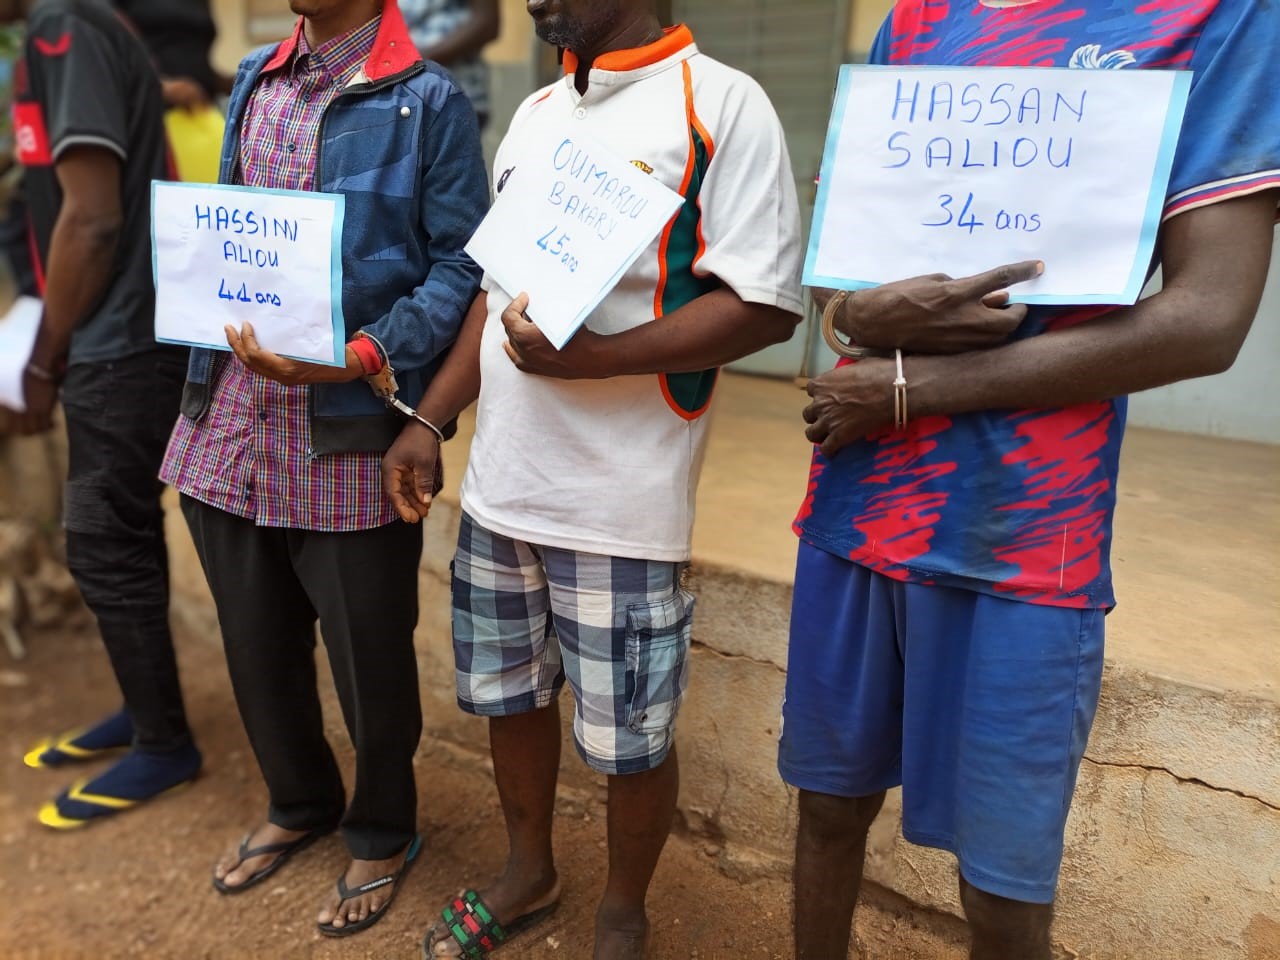 HASSINI
ALIOU
41 ans
OUMAROU
BAKARY
45 ans
HASSAN
SALIOU
34 ans